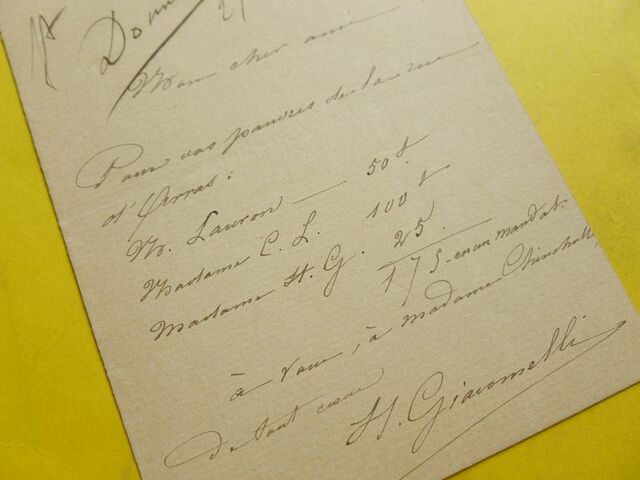 Mon cher ami
Pour vos pauvres de la rue
d'Arras:
M. Lauron — 50 f.
Madame C. L. 100 f
Madame H. G. 25.
175 - en un mandat.
à vous, à madame
de tout cœur
H. Giacomelli